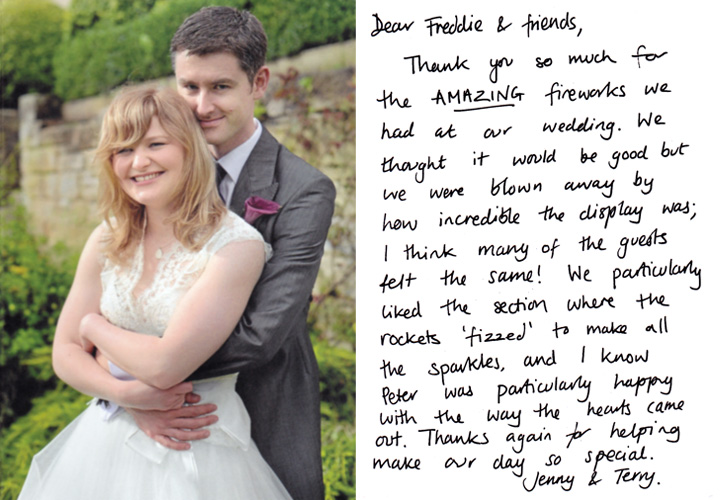 Dear Freddie & friends,
Thank you so much for
the AMAZING fireworks we
had at our wedding. We
thought it would be good but
we were blown away by
how incredible the display was;
I think many of the guests
felt the same! We particularly
liked the section where the
rockets 'fizzed' to make all
the sparkles, and I know
Peter was particularly happy
with the way the hearts came
out. Thanks again for helping
make our day so special.
Jenny & Terry.